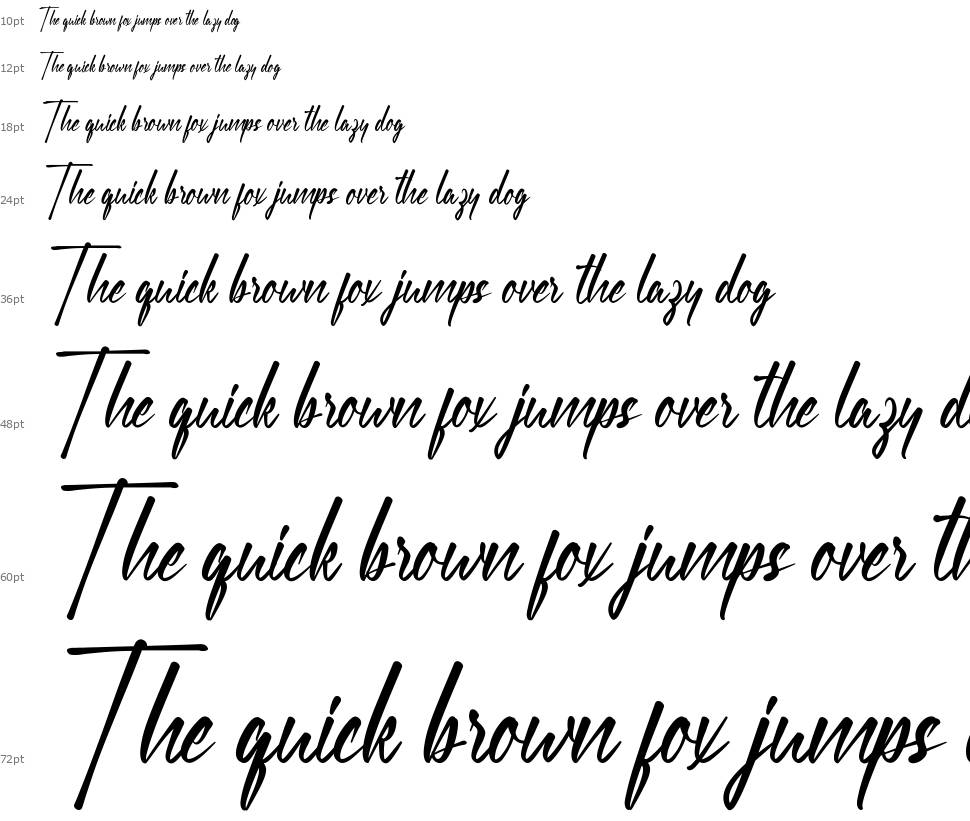 10pt The quick brown fox jumps over the lazy dog
12pt The quick brown fox jumps over the lazy dog
18pt The quick brown fox jumps over the lazy dog
24pt The quick brown fox jumps over the lazy dog
36pt The quick brown fox jumps over the lazy dog
48pt The quick brown fox jumps over the lazy d
60pt The quick brown fox jumps over th
72pt The quick brown fox jumps